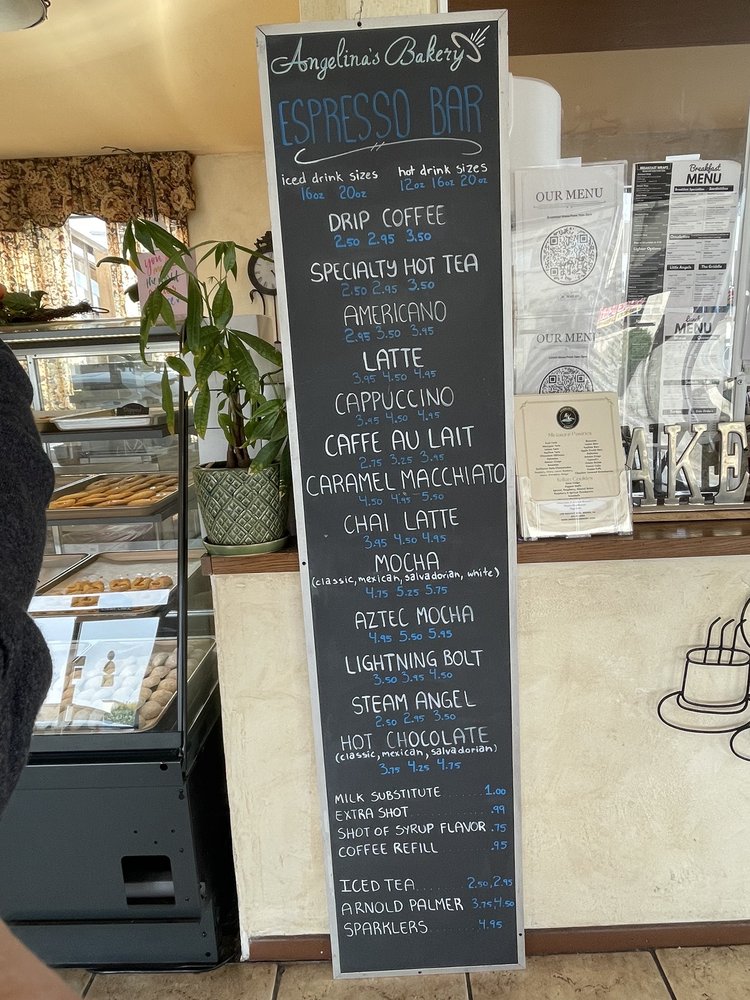 Angelina's Bakery
ESPRESSO BAR
iced drink sizes
16oz 20oz
hot drink sizes
12oz 16oz 20oz
DRIP COFFEE
2.50 2.95 3.50
SPECIALTY HOT TEA
2.50 2.95 3.50
AMERICANO
2.95 3.50 3.95
LATTE
3.95 4.50 4.95
CAPPUCCINO
3.95 4.50 4.95
CAFFE AU LAIT
2.75 3.25 3.95
CARAMEL MACCHIATO
4.50 4.95 5.50
CHAI LATTE
3.95 4.50 4.95
MOCHA
(classic, mexican, salvadorian, white)
4.75 5.25 5.75
AZTEC MOCHA
4.95 5.50 5.95
LIGHTNING BOLT
3.50 3.95 4.50
STEAM ANGEL
2.50 2.95 3.50
HOT CHOCOLATE
(classic, mexican, salvadorian)
3.75 4.25 4.75
MILK SUBSTITUTE 1.00
EXTRA SHOT .99
SHOT OF SYRUP FLAVOR .75
COFFEE REFILL .95
ICED TEA 2.50, 2.95
ARNOLD PALMER 3.75, 4.50
SPARKLERS 4.95
OUR MENU
OUR MENU
Breakfast
MENU
Lunch
MENU
AKE